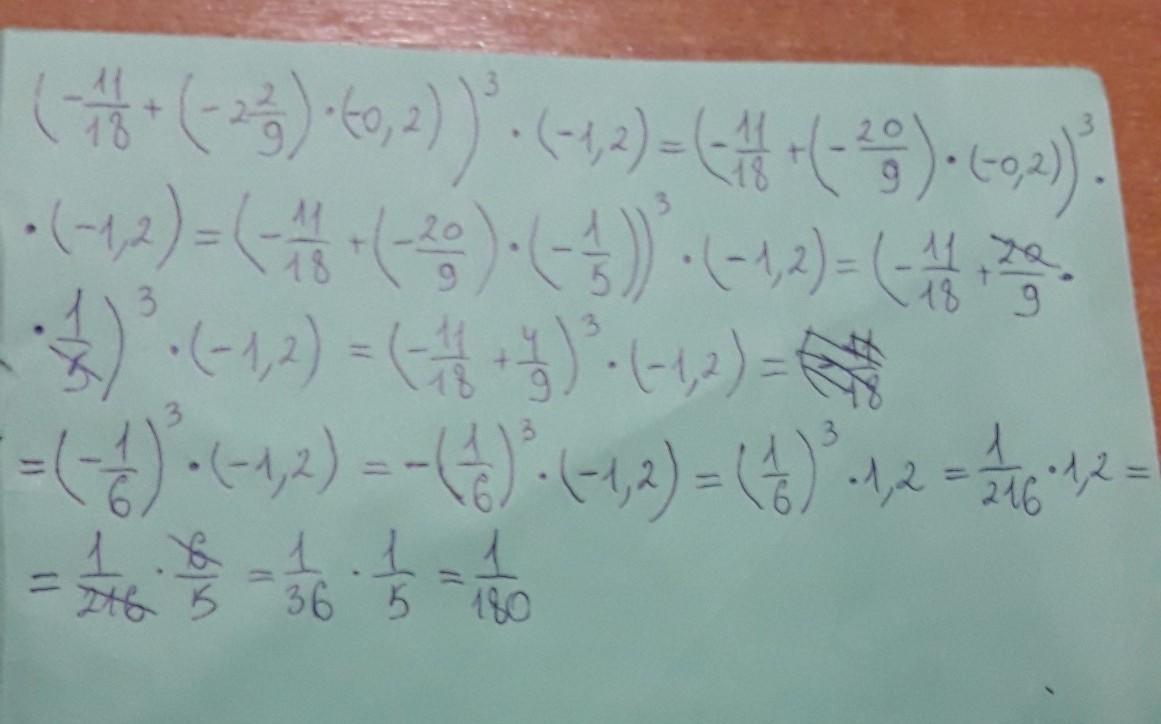 (-11/18 + (-2 2/9) · (-0,2))³ · (-1,2) = (-11/18 + (-20/9) · (-0,2))³ ·
· (-1,2) = (-11/18 + (-20/9) · (-1/5))³ · (-1,2) = (-11/18 + 20/9 ·
· 1/5)³ · (-1,2) = (-11/18 + 4/9)³ · (-1,2) =
= (-1/6)³ · (-1,2) = -(1/6)³ · (-1,2) = (1/6)³ · 1,2 = 1/216 · 1,2 =
= 1/216 · 6/5 = 1/36 · 1/5 = 1/180